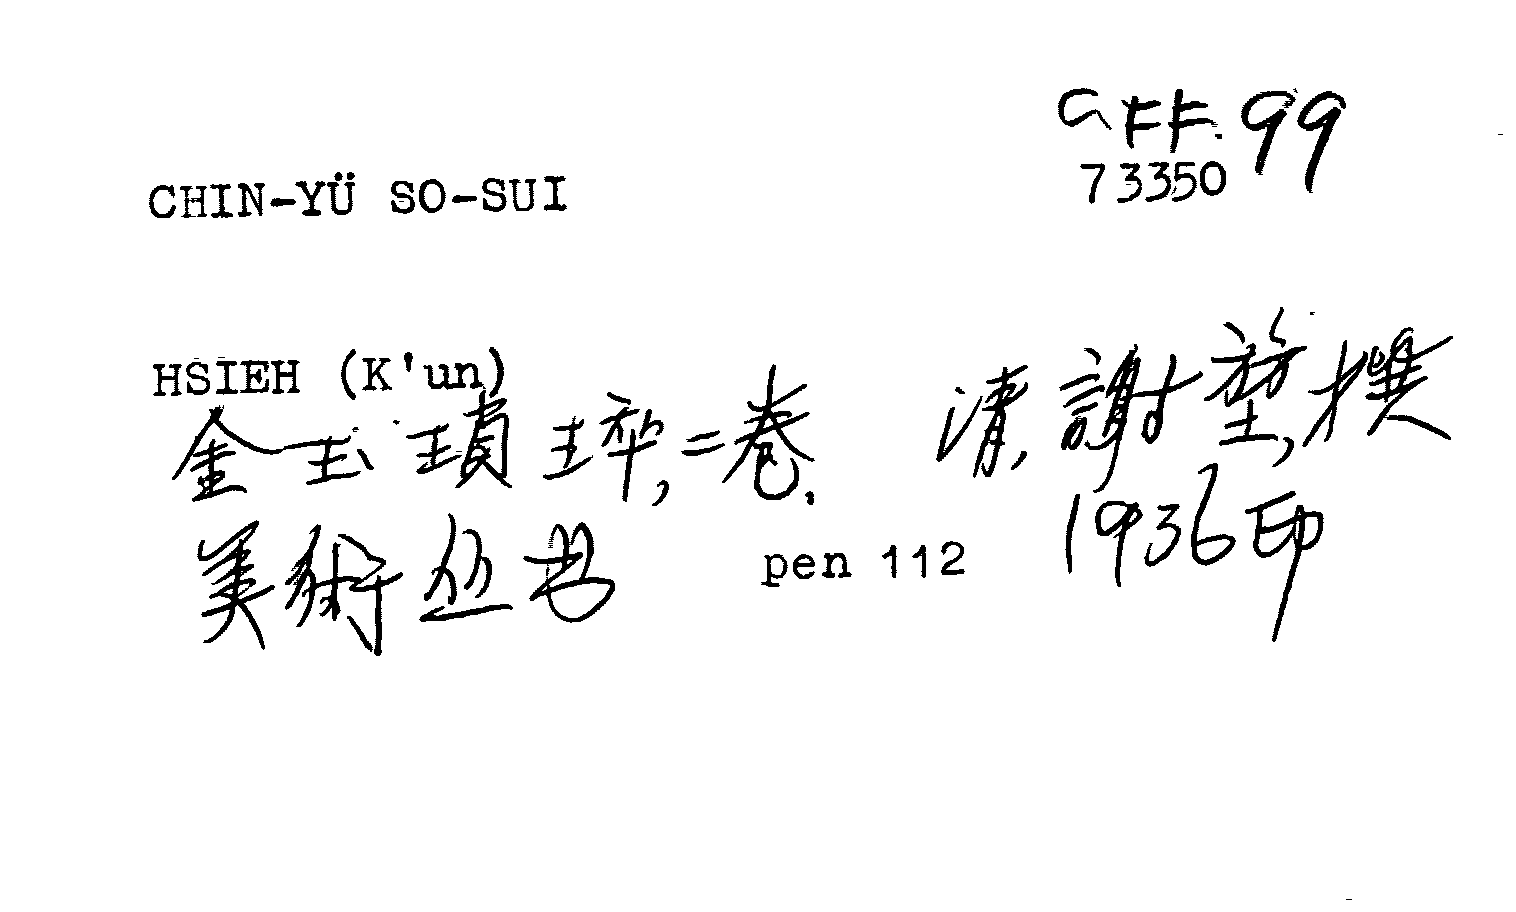 CFF.99
73350
CHIN-YÜ SO-SUI
HSIEH (K'un)
金玉瑣琗,二卷. 清,謝堃,撰
美術丛书 pen 112 1936印